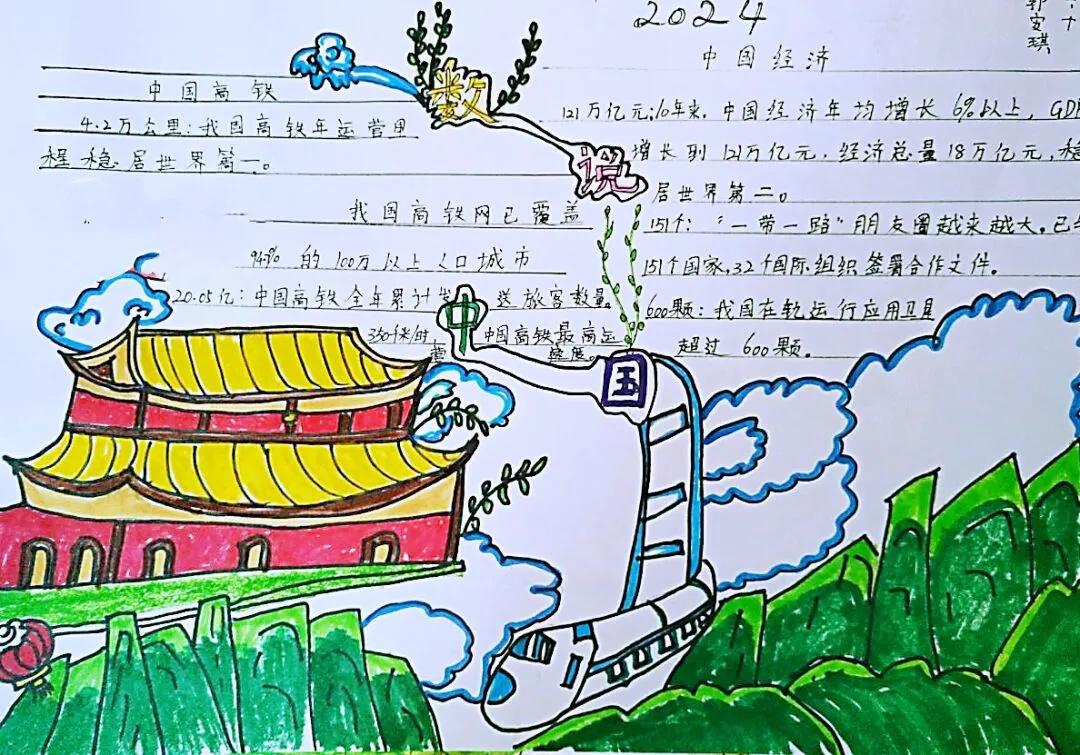 2024
六十
郭安琪
数说中国
中国高铁
4.2万公里:我国高铁年运营里
程稳居世界第一。
我国高铁网已覆盖
94%的100万以上人口城市
20.05亿:中国高铁全年累计发送旅客数量。
350千米/时 中国高铁最高运
速度。
中国经济
121万亿元:10年来,中国经济年均增长6%以上,GDP
增长到121万亿元,经济总量18万亿元,稳
居世界第二。
151个:"一带一路"朋友圈越来越大。已与
151个国家,32个国际组织签署合作文件。
600颗:我国在轨运行应用卫星
超过600颗。